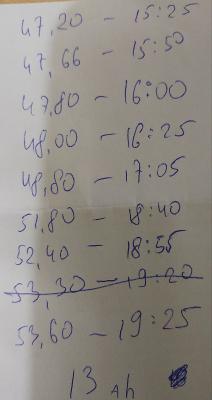 47,20 - 15:25
47,66 - 15:50
47,80 - 16:00
48,00 - 16:25
48,80 - 17:05
51,80 - 18:40
52,40 - 18:55
53,30 - 19:20
53,60 - 19:25
13 Ah